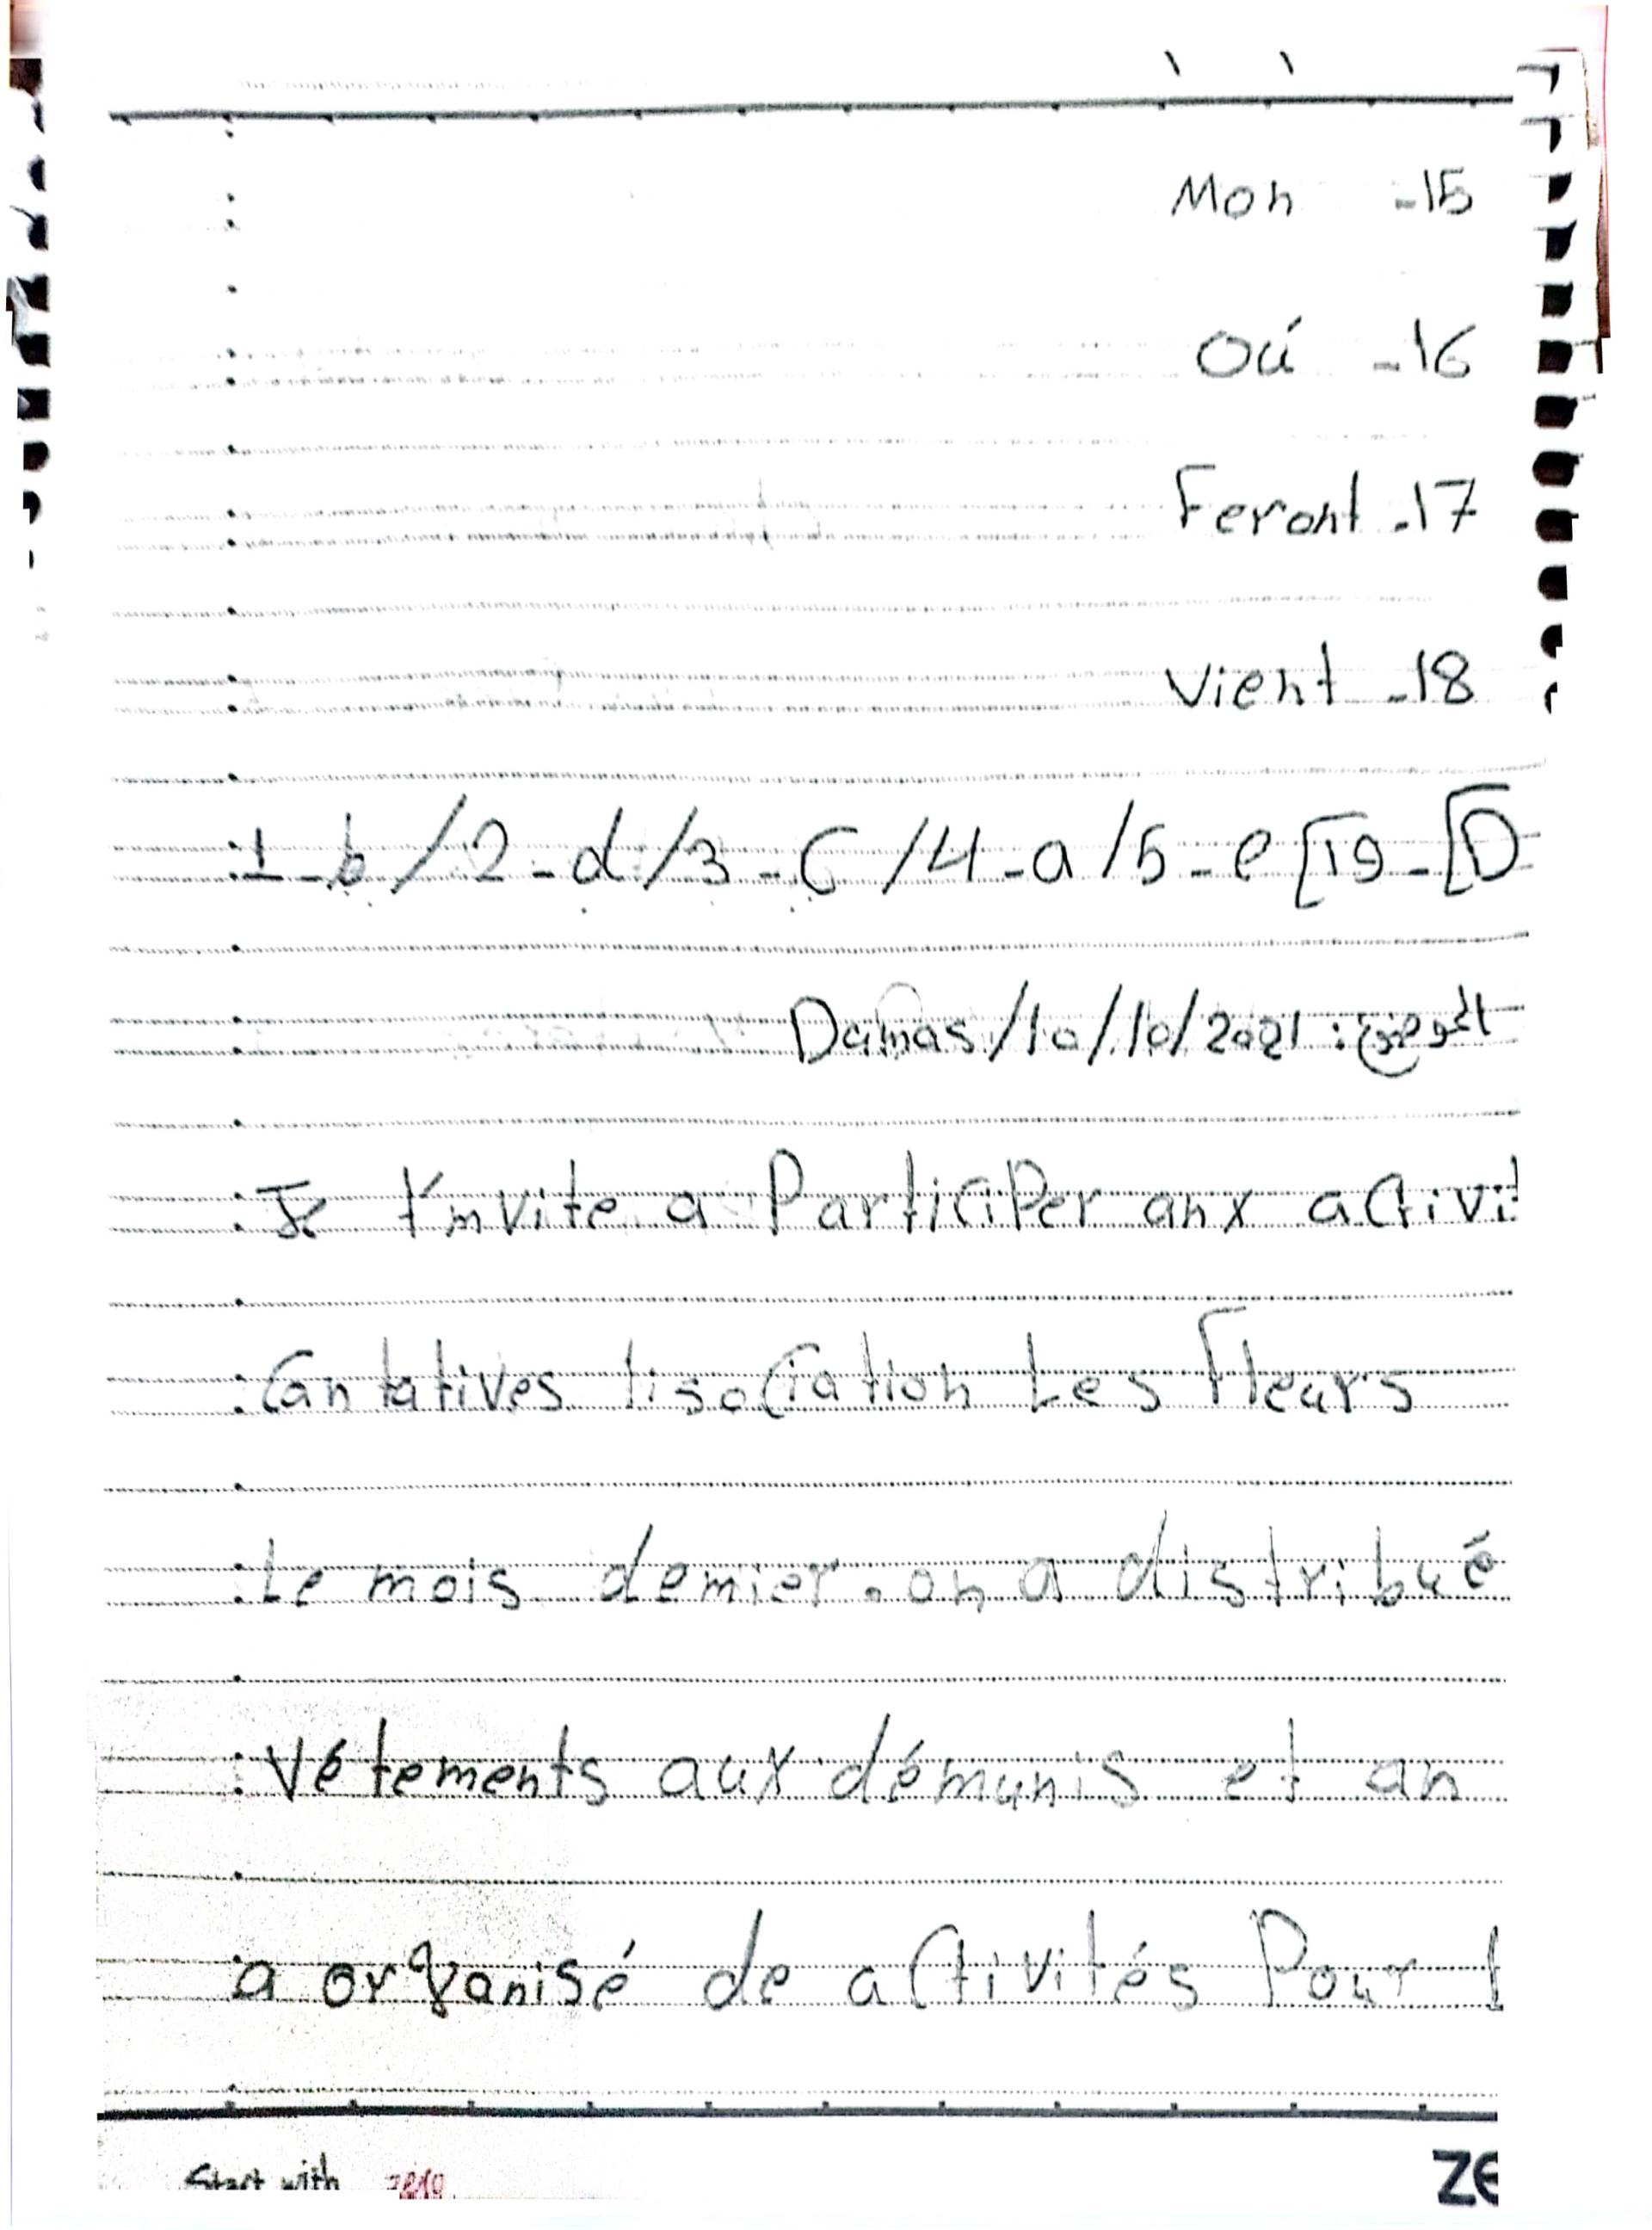 Mon -15
Oú -16
Feront -17
Vient -18
1-b/2-d/3-C/4-a/5-e [19-[D
Damas/10/10/2021 : الموضوع
Je t'invite a Participer anx activi
Cantatives lisociation Les Fleurs
Le mois demier. on a distribué
Vétements aux démunis et an
a organisé de activités Pour l
Start with zero
ze